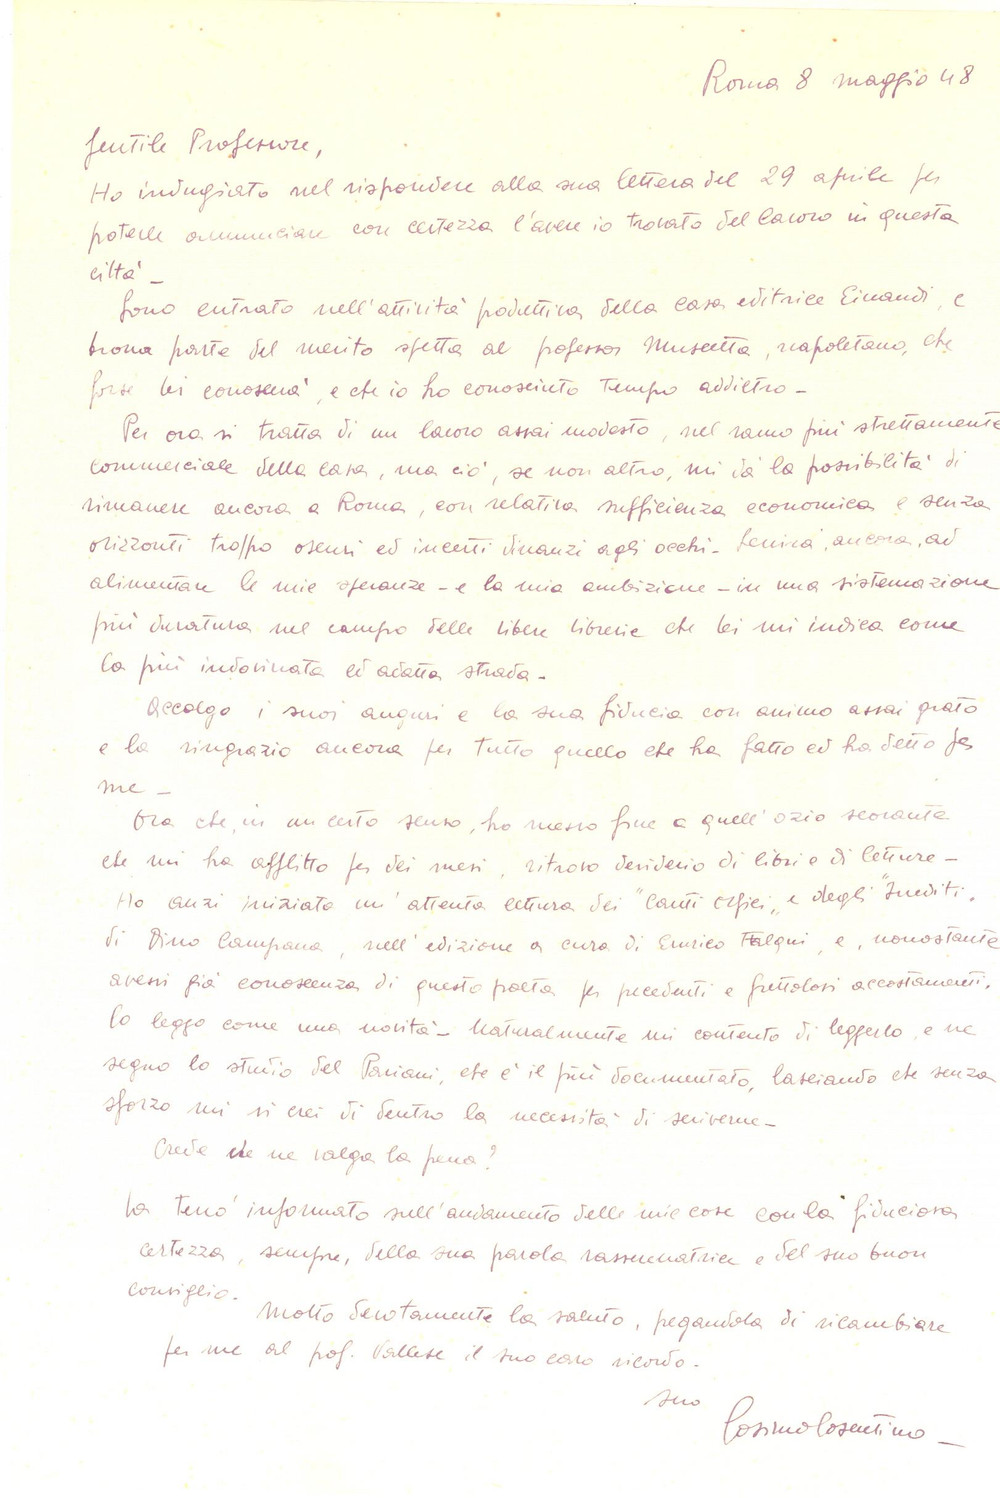 Roma 8 maggio 48
Gentile Professore,
Ho indugiato nel rispondere alla sua lettera del 29 aprile per
poterle annunciare con certezza l'avere io trovato del lavoro in questa
città –
Sono entrato nell'attività produttiva della casa editrice Einaudi, e
buona parte del merito spetta al professor Muscetta, napoletano, che
forse lei conoscerà, e che io ho conosciuto tempo addietro –
Per ora si tratta di un lavoro assai modesto, nel ramo più strettamente
commerciale della casa, ma ciò, se non altro, mi dà la possibilità di
rimanere ancora a Roma, con relativa sufficienza economica e senza
orizzonti troppo oscuri ed incerti dinanzi agli occhi – Servirà, ancora, ad
alimentare le mie speranze – e la mia ambizione – in una sistemazione
più duratura nel campo delle libere librerie che lei mi indica come
la più indovinata ed adatta strada –
Accolgo i suoi auguri e la sua fiducia con animo assai grato
e la ringrazio ancora per tutto quello che ha fatto ed ha detto per
me –
Ora che, in un certo senso, ho messo fine a quell'ozio scorante
che mi ha afflitto per dei mesi, ritrovo desiderio di libri e di letture –
Ho anzi iniziato un'attenta lettura dei "Canti orfici" e degli "Inediti"
di Dino Campana, nell'edizione a cura di Enrico Falqui, e, nonostante
avessi già conoscenza di questo poeta per precedenti e frettolosi accostamenti,
lo leggo come una novità – Naturalmente mi contento di leggerlo, e ne
seguo lo studio del Pariani, che è il più documentato, lasciando che senza
sforzo mi si crei di dentro la necessità di scriverne –
Crede che ne valga la pena?
La terrò informato sull'andamento delle mie cose con la fiduciosa
certezza, sempre, della sua parola rasserenatrice e del suo buon
consiglio.
Molto devotamente la saluto, pregandola di ricambiare
per me al prof. Vallese il suo caro ricordo.
suo
Cosimo Cosentino –